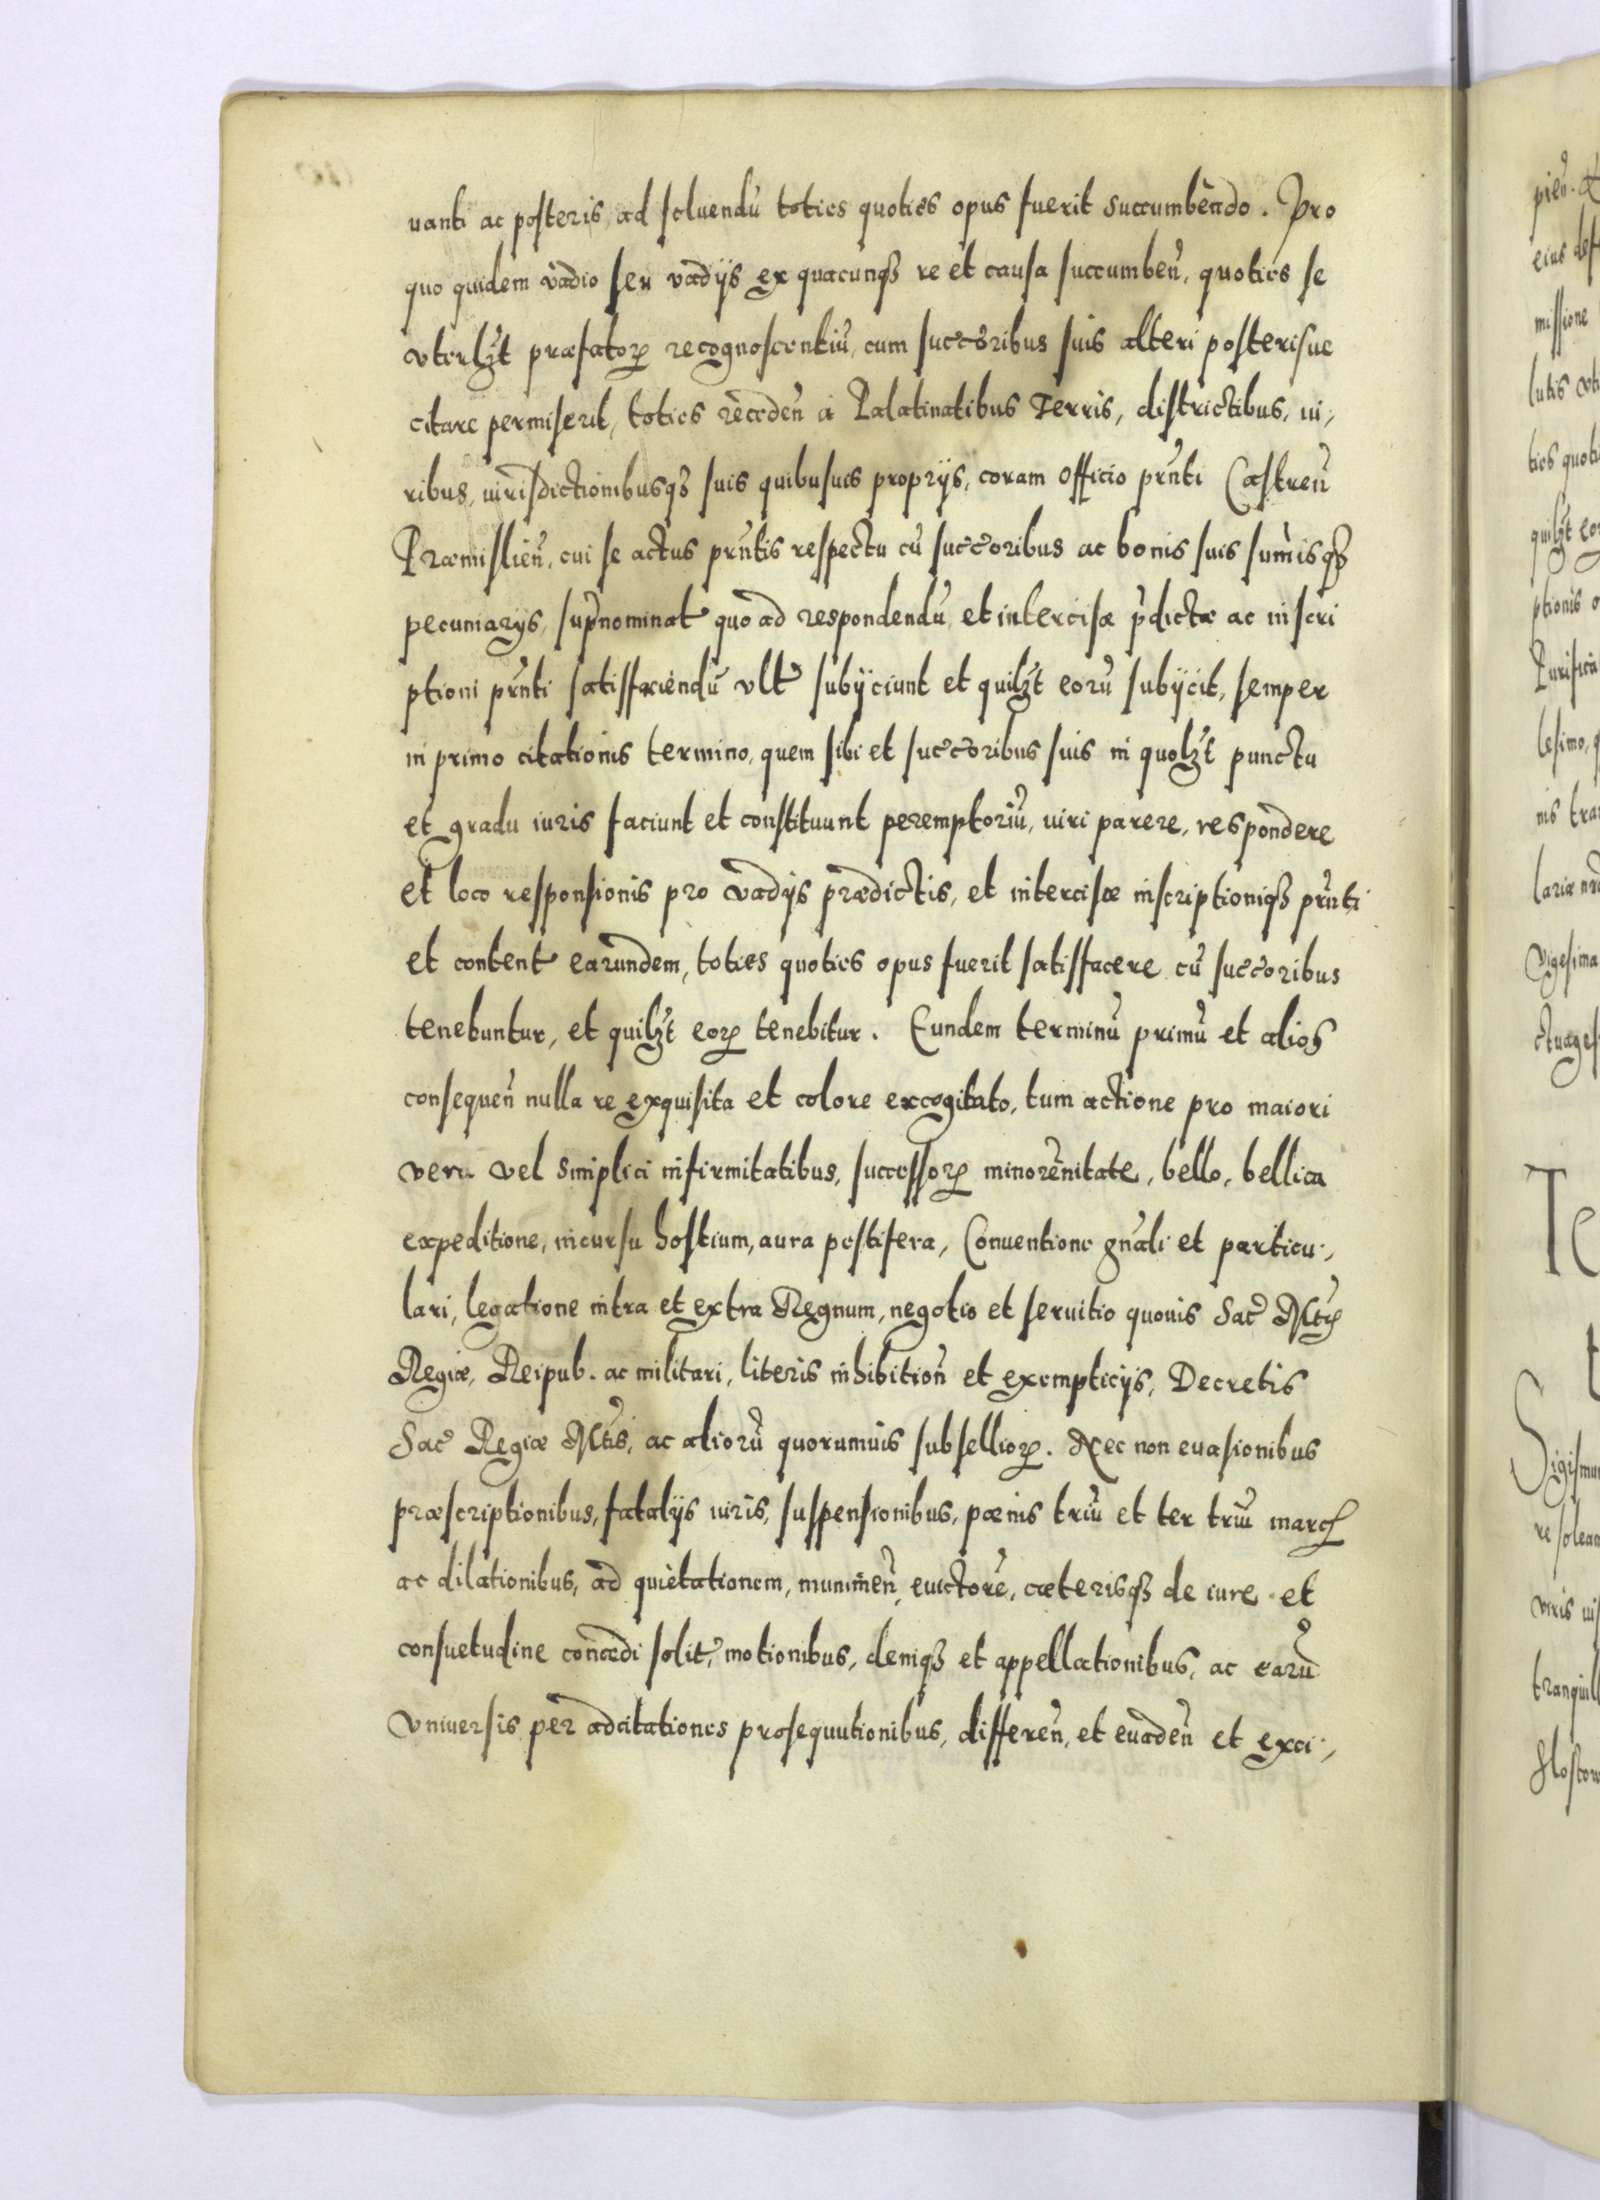 uanti ac posteris, ad soluendū toties quoties opus fuerit succumbēndo. Pro
quo quidem vadio seu vadijs ex quacunqȝ re et causa succumbeñ, quoties se
vterlȝt præfatoꝝ recognoscentiū, cum succ̃oribus suis alteri posterisue
citare permiserit, toties recedeñ à Palatinatibus Terris, districtibus, iu,
ribus, iurisdictionibusqȝ suis quibusuis proprijs, coram Officio prñti Castreñ
Præmislieñ, cui se actus prñtis respectu cū succ̃oribus ac bonis suis sum̃isqȝ
pecuniarijs, supnominat̃ quo ad respondendū, et intercisæ p̃dictæ ac inscri
ptioni prñti satisfaciendū vlt̃ subijciunt et quilȝt eorū subijcit, semper
in primo citationis termino, quem sibi et succ̃oribus suis in quolȝt punctu
et gradu iuris faciunt et constituunt peremptoriū, iuri parere, respondere
et loco responsionis pro vadijs prædictis, et intercisæ inscriptioniqȝ prñti
et content̃ earundem, toties quoties opus fuerit satisfacere cū succ̃oribus
tenebuntur, et quilȝt eoꝝ tenebitur. Eundem terminū primū et alios
consequeñ nulla re exquisita et colore excogitato, tum actione pro maiori
vera vel simplici infirmitatibus, successoꝝ minorēnitate, bello, bellica
expeditione, incursu hostium, aura pestifera, Conuentione gñali et particu,
lari, legatione intra et extra Regnum, negotio et seruitio quouis Sac̃ Mt̃is
Regiæ, Reipub. ac militari, literis inhibitioñ et exempticijs, Decretis
Sac̃ Regiæ Mt̃is, ac aliorū quorumuis subsellioꝝ. Nec non euasionibus
præscriptionibus, fatalijs iuris, suspensionibus, pœnis triū et ter triū marcaꝝ
ac dilationibus, ad quietationem, munimeñ, euictorē, cæterisqȝ de iure et
consuetudine concedi solit̃, motionibus, deniqȝ et appellationibus, ac earū
vniuersis per adcitationes prosequutionibus, differeñ, et euadeñ et exci,